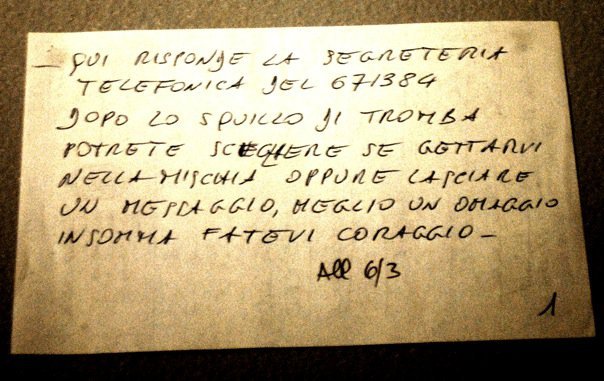 — QUI RISPONDE LA SEGRETERIA
TELEFONICA DEL 671384
DOPO LO SQUILLO DI TROMBA
POTRETE SCEGLIERE SE GETTARVI
NELLA MISCHIA OPPURE LASCIARE
UN MESSAGGIO, MEGLIO UN OMAGGIO
INSOMMA FATEVI CORAGGIO —
All 6/3
1